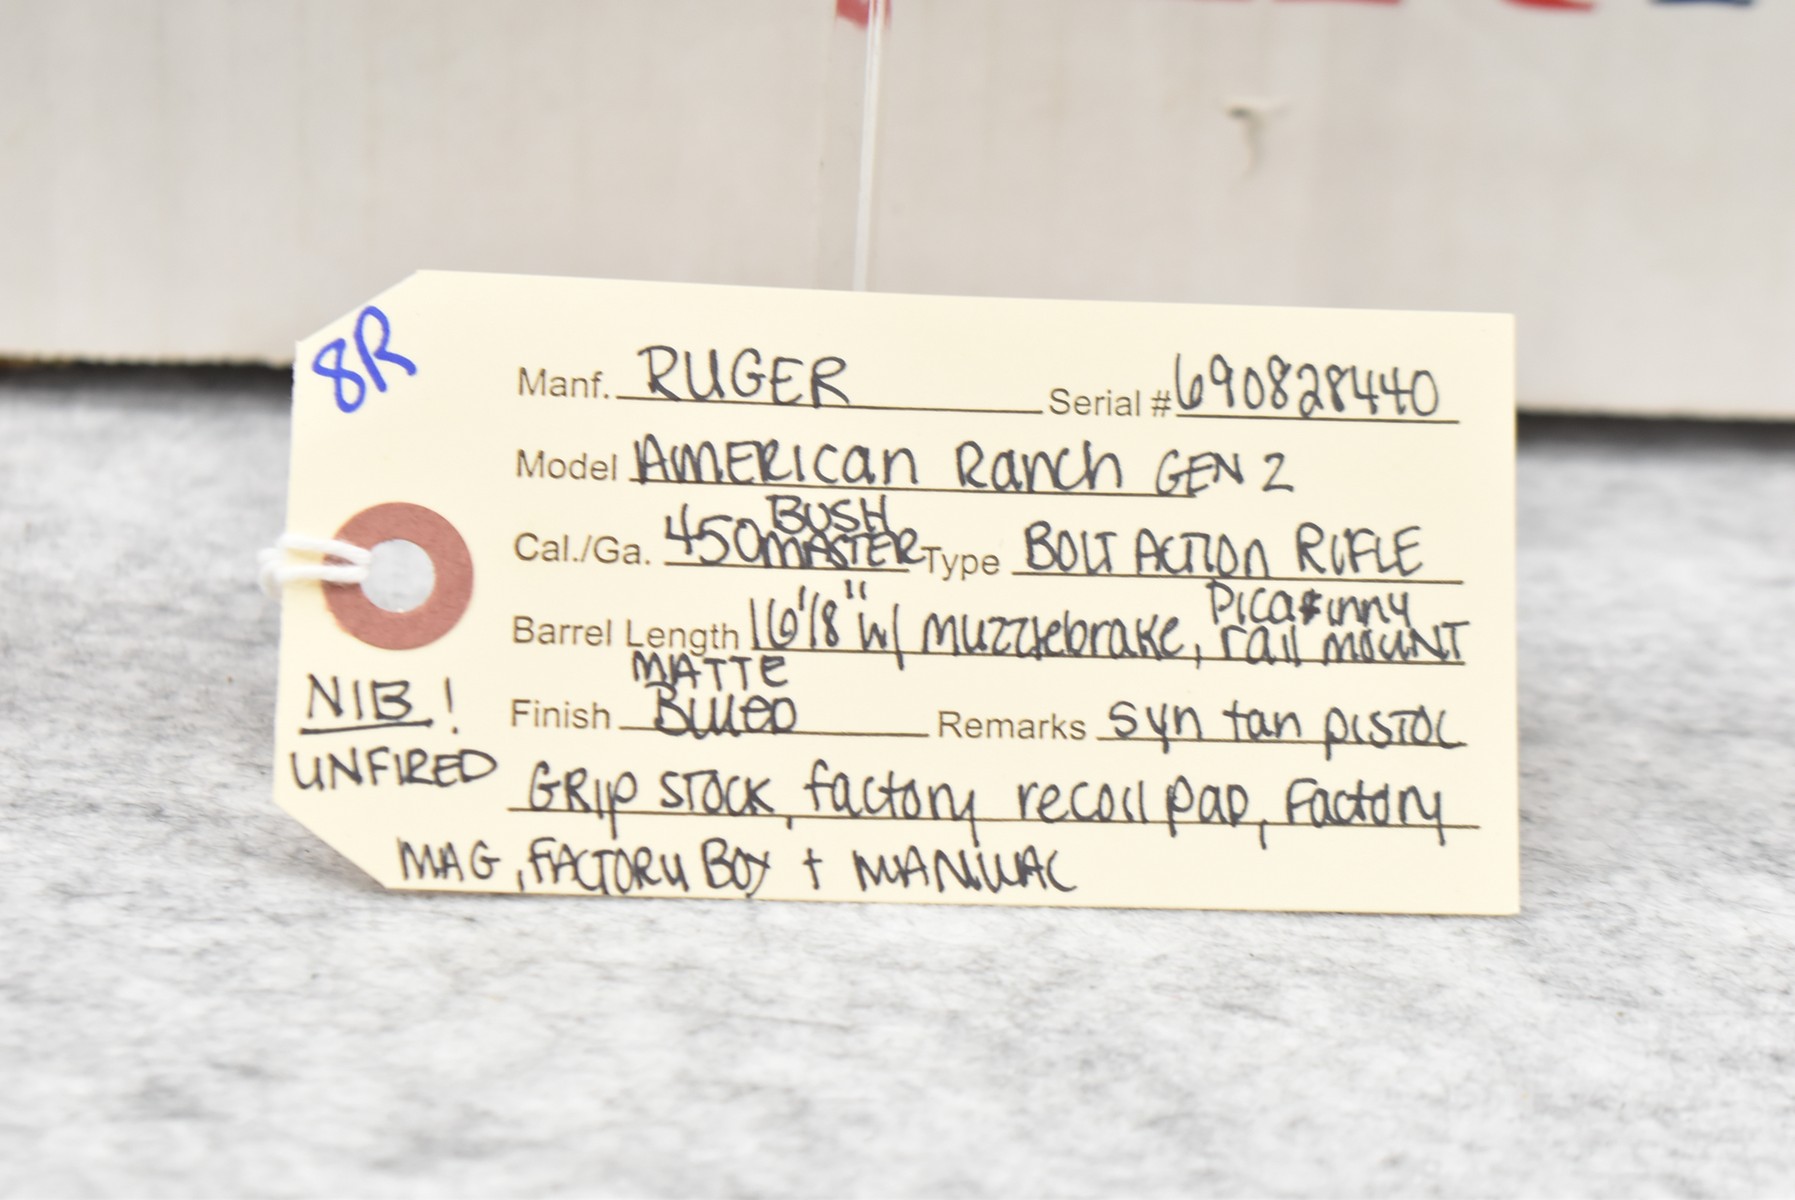 8R
Manf. RUGER Serial # 690828440
Model AMERICan Ranch GEN 2
Cal./Ga. 450 BUSH MASTER Type BOLT ACTION RIFLE
Barrel Length 16 1/8" w/ muzzlebrake, Picatinny rail mOUNT
Finish MATTE Blued Remarks syn tan pISTOL
GRIp STOCK, factory recoil pad, Factory
MAG, FACTORY BOX + MANUAL
NIB!
UNFIRED